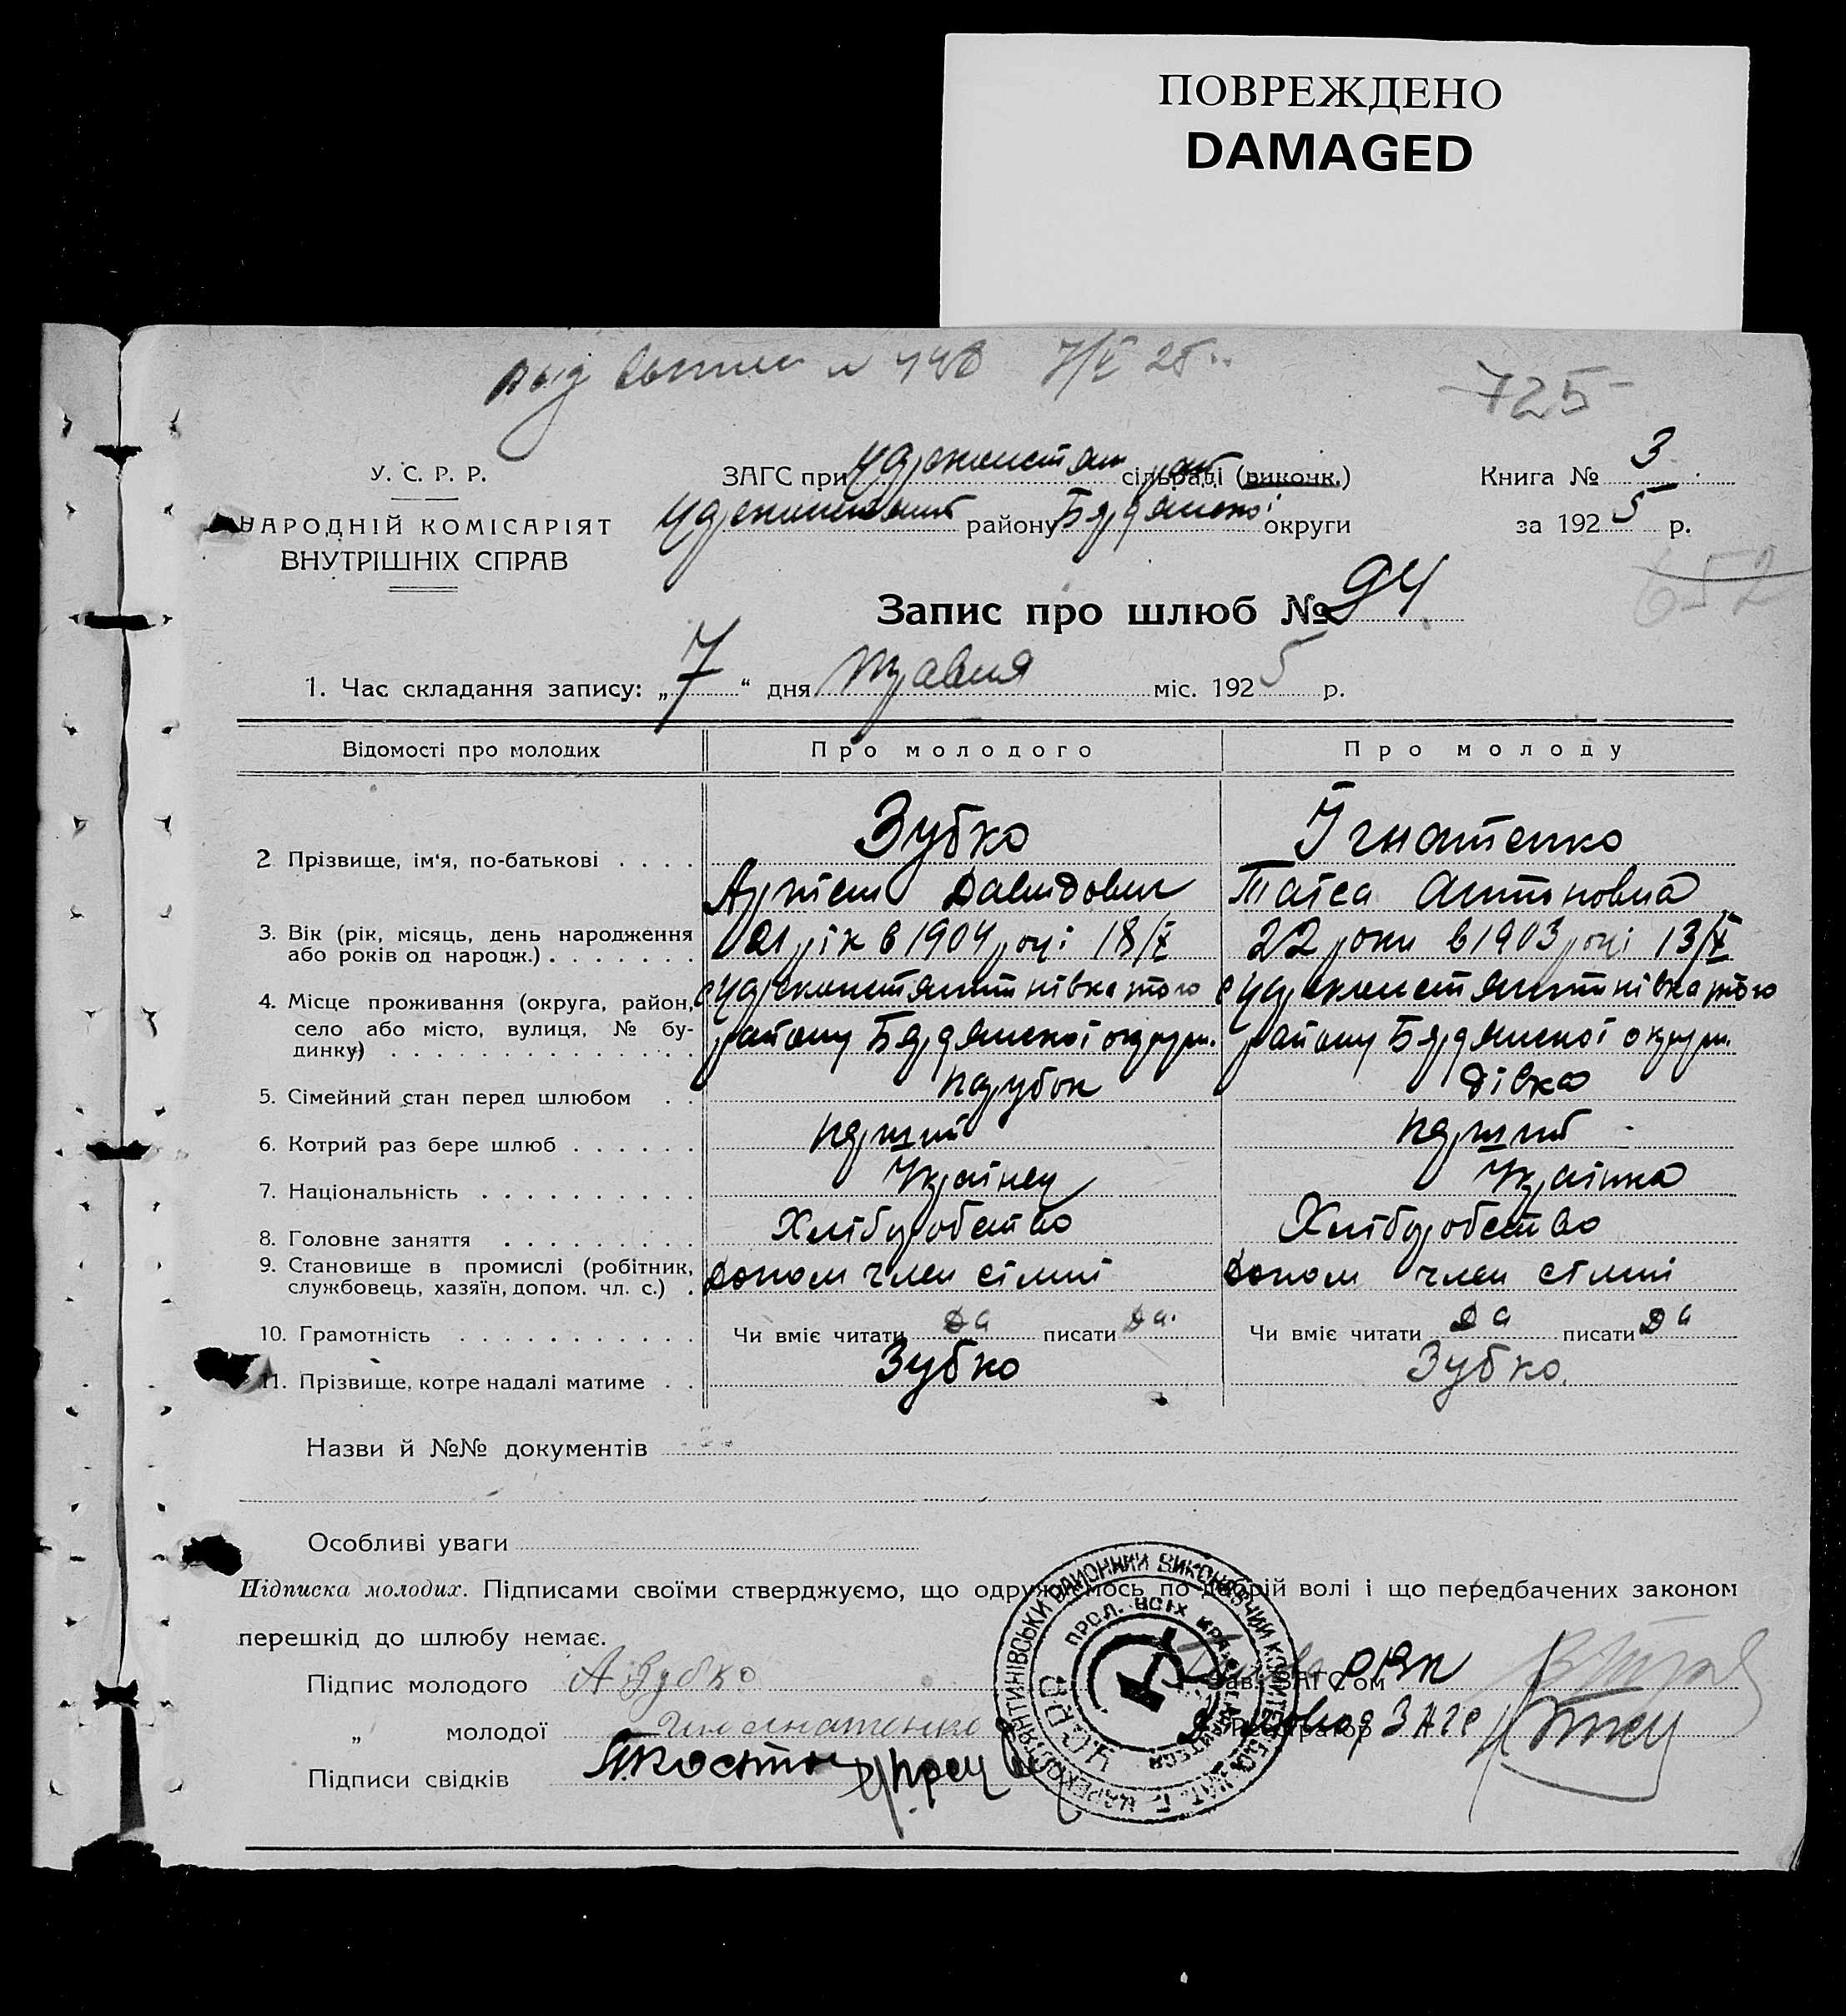 ПОВРЕЖДЕНО
DAMAGED
7/V 25
725
У. С. Р. Р.
ЗАГС при сільраді (викочк.)
Книга № 3
НАРОДНІЙ КОМІСАРІЯТ
ВНУТРІШНІХ СПРАВ
району Бердянської округи
за 1925 р.
652
Запис про шлюб № 94
1. Час складання запису: „7“ дня травня міс. 1925 р.
Відомості про молодих Про молодого Про молоду
Зубко Ігнатенко
2 Прізвище, ім'я, по-батькові . . . .
Артем Давидович Таіса Антоновна
3. Вік (рік, місяць, день народження
або років од народж.) . . . . . . .
21 рік в 1904 році 18/X 22 роки в 1903 році 13/X
4. Місце проживання (округа, район,
село або місто, вулиця, № бу-
динку) . . . . . . . . . . . . . .
с Цареконстянтинівка того с Цареконстянтинівка того
району Бердянської округи. району Бердянської округи.
5. Сімейний стан перед шлюбом . . парубок дівка
6. Котрий раз бере шлюб . . . . . . перший перший
7. Національність . . . . . . . . . . Украінец Украінка
8. Головне заняття . . . . . . . . . Хліборобство Хліборобство
9. Становище в промислі (робітник,
службовець, хазяїн, допом. чл. с.) .
допом член сімії допом член сімії
10. Грамотність . . . . . . . . . . . Чи вміє читати да писати да. Чи вміє читати да писати да
11. Прізвище, котре надалі матиме . . Зубко Зубко.
Назви й №№ документів
Особливі уваги
Підписка молодих. Підписами своїми стверджуємо, що одружуємось по добрій волі і що передбачених законом
перешкід до шлюбу немає.
Підпис молодого А Зубко
Зав. ЗАГС'ом РВК
„ молодої Игнатенко
Реєстратор ЗАГС
Підписи свідків
РАЙОННИЙ ВИКОНАВЧИЙ КОМІТЕТ
ПРОЛ. ВСІХ КРАЇН
УСРР